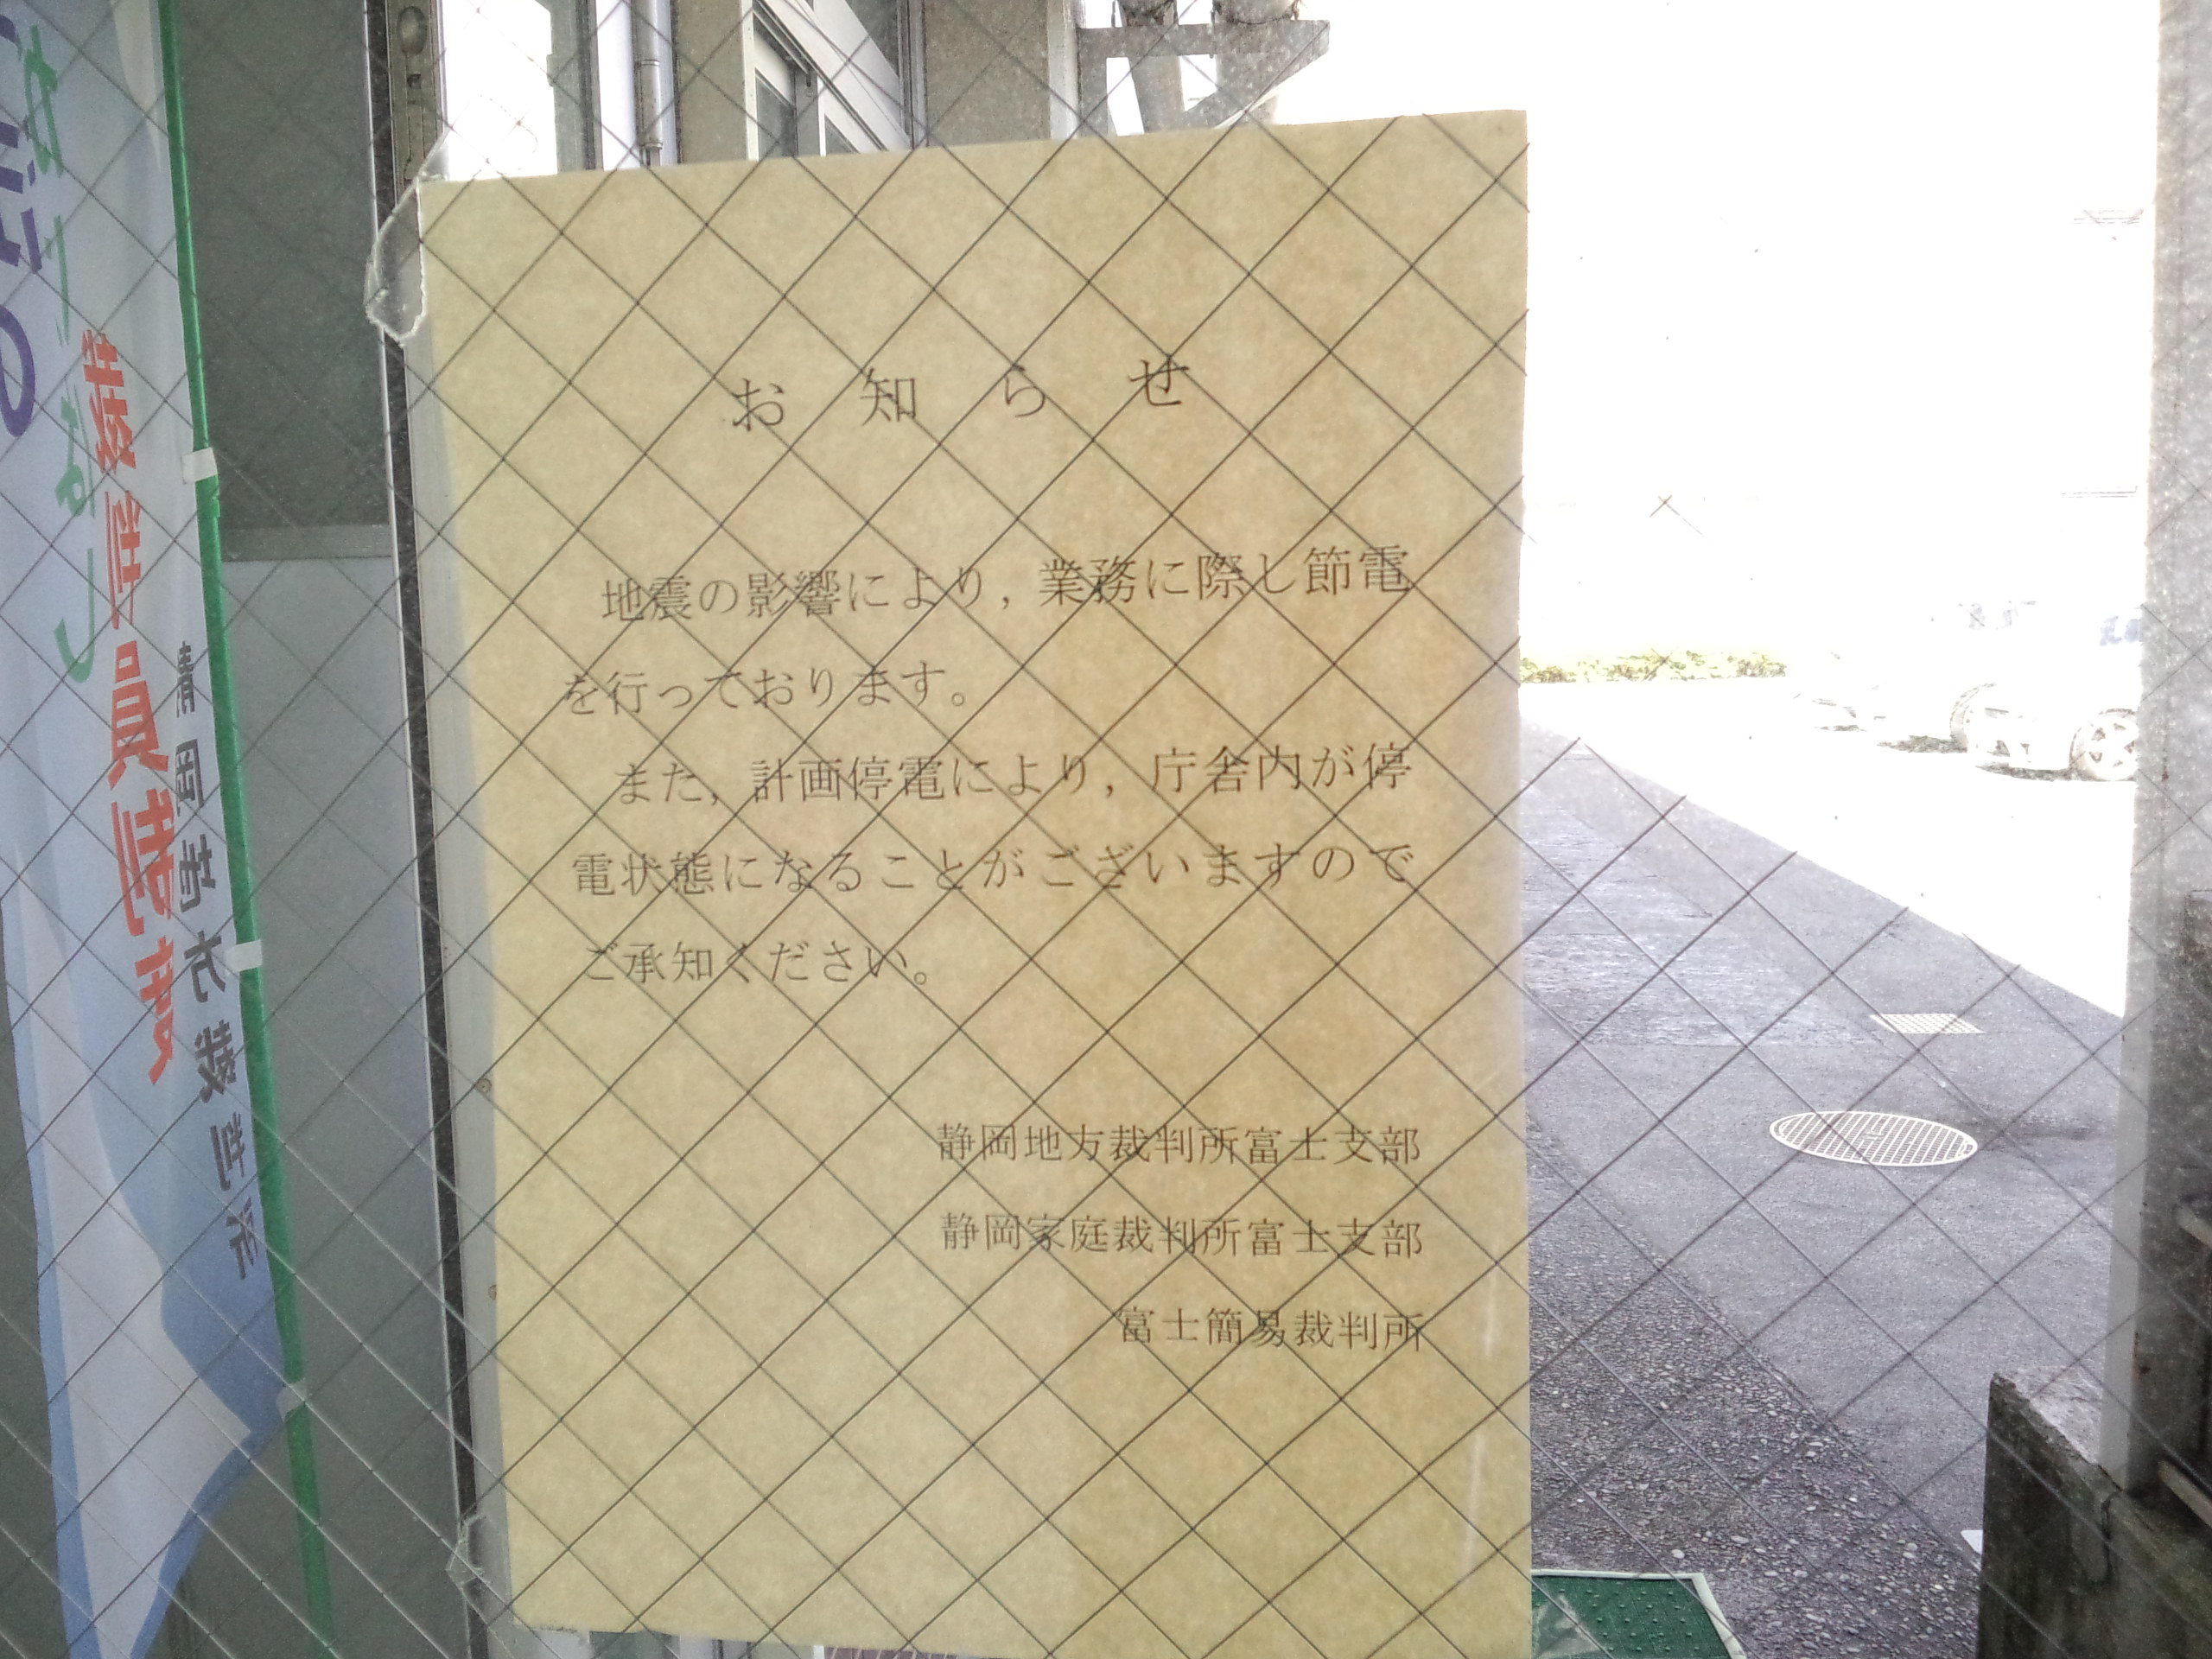 お知らせ
地震の影響により，業務に際し節電
を行っております。
また，計画停電により，庁舎内が停
電状態になることがございますので
ご承知ください。
静岡地方裁判所富士支部
静岡家庭裁判所富士支部
富士簡易裁判所
裁判員制度
静岡地方裁判所